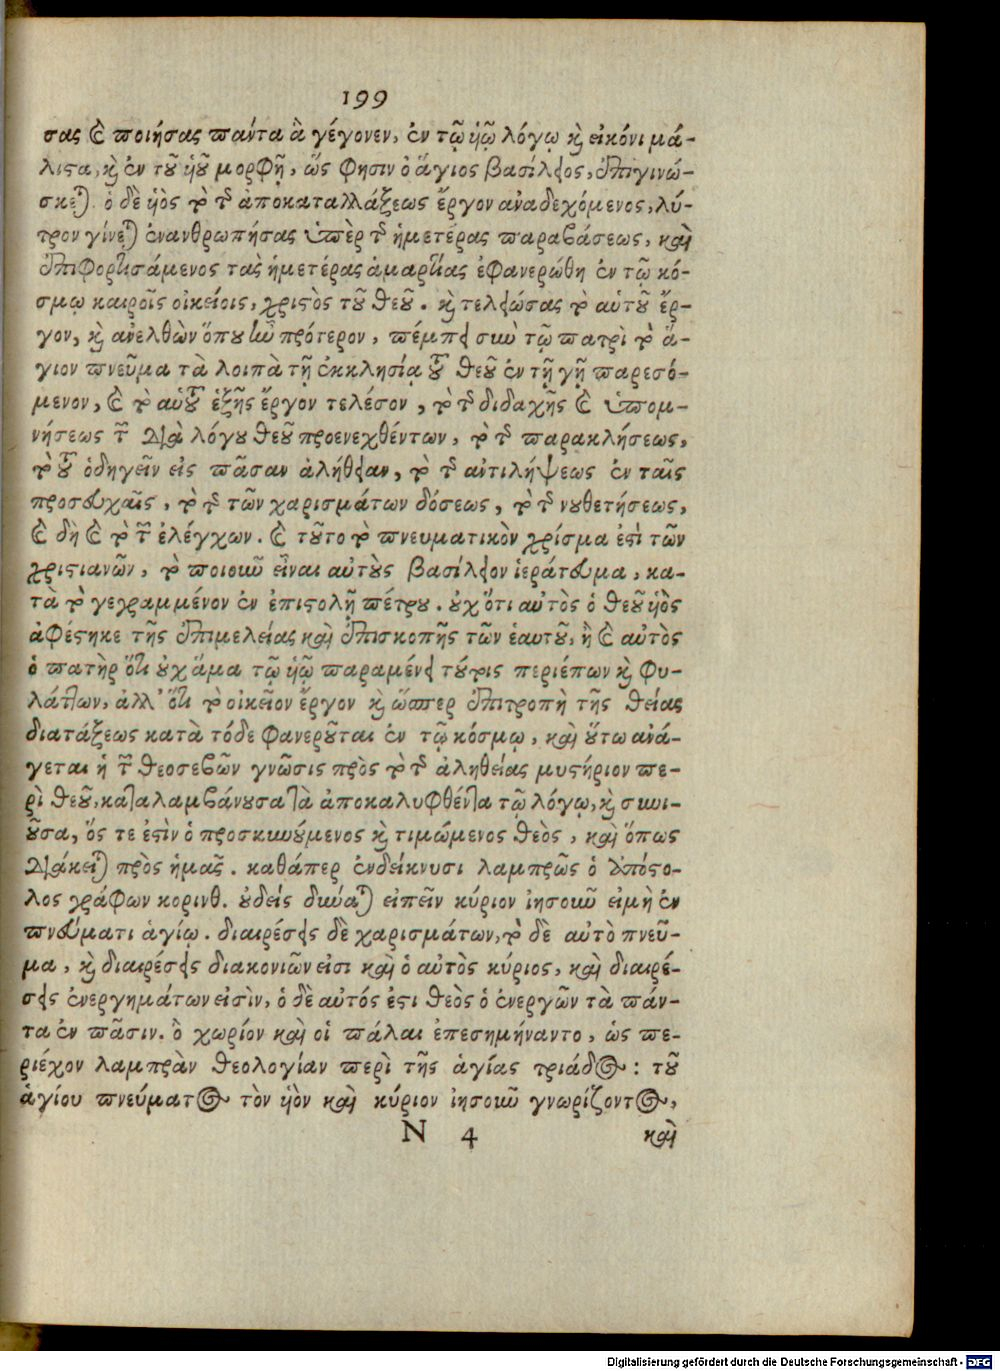 199
σας καὶ ποιήσας πάντα ἃ γέγονεν, ἐν τῷ ὑῷ λόγῳ καὶ εἰκόνι μά-
λιστα, καὶ ἐν τοῦ ὑοῦ μορφῇ, ὥς φησιν ὁ ἅγιος βασίλειος, ἐπιγινώ-
σκεται. ὁ δὲ ὑὸς τὸ τῆς ἀποκαταλλάξεως ἔργον ἀναδεχόμενος, λύ-
τρον γίνεται ἐνανθρωπήσας ὑπὲρ τῆς ἡμετέρας παραβάσεως, καὶ
ἐπιφορτισάμενος τὰς ἡμετέρας ἁμαρτίας ἐφανερώθη ἐν τῷ κό-
σμῳ καιροῖς οἰκείοις, χριστὸς τοῦ θεοῦ. καὶ τελειώσας τὸ αὑτοῦ ἔρ-
γον, καὶ ἀνελθὼν ὅπου ἦν πρότερον, πέμπει σὺν τῷ πατρὶ τὸ ἅ-
γιον πνεῦμα τὰ λοιπὰ τῇ ἐκκλησίᾳ τοῦ θεοῦ ἐν τῇ γῇ παρεσό-
μενον, καὶ τὸ αὐτοῦ ἑξῆς ἔργον τελέσον, τὸ τῆς διδαχῆς καὶ ὑπομ-
νήσεως τῶν διὰ λόγου θεοῦ προενεχθέντων, τὸ τῆς παρακλήσεως,
τὸ τοῦ ὁδηγεῖν εἰς πᾶσαν ἀλήθειαν, τὸ τῆς ἀντιλήψεως ἐν ταῖς
προσευχαῖς, τὸ τῆς τῶν χαρισμάτων δόσεως, τὸ τῆς νουθετήσεως,
καὶ δὴ καὶ τὸ τῶν ἐλέγχων. καὶ τοῦτο τὸ πνευματικὸν χρίσμα ἐστὶ τῶν
χριστιανῶν, τὸ ποιοῦν εἶναι αὐτοὺς βασίλειον ἱεράτευμα, κα-
τὰ τὸ γεγραμμένον ἐν ἐπιστολῇ πέτρου. οὐχ ὅτι αὐτὸς ὁ θεοῦ ὑὸς
ἀφέστηκε τῆς ἐπιμελείας καὶ ἐπισκοπῆς τῶν ἑαυτοῦ, ἢ καὶ αὐτὸς
ὁ πατὴρ ὅτι οὐχ ἅμα τῷ ὑῷ παραμένει τούτοις περιέπων καὶ φυ-
λάττων, ἀλλ' ὅτι τὸ οἰκεῖον ἔργον καὶ ὥσπερ ἐπιτροπὴ τῆς θείας
διατάξεως κατὰ τόδε φανεροῦται ἐν τῷ κόσμῳ, καὶ οὕτω ἀνά-
γεται ἡ τῶν θεοσεβῶν γνῶσις πρὸς τὸ τῆς ἀληθείας μυστήριον πε-
ρὶ θεοῦ, καταλαμβάνουσα τὰ ἀποκαλυφθέντα τῷ λόγῳ, καὶ συνι-
οῦσα, ὅς τε ἐστὶν ὁ προσκυνούμενος καὶ τιμώμενος θεὸς, καὶ ὅπως
διάκειται πρὸς ἡμᾶς. καθάπερ ἐνδείκνυσι λαμπρῶς ὁ ἀπόστο-
λος γράφων κορινθ. οὐδεὶς δύναται εἰπεῖν κύριον ἰησοῦν εἰμὴ ἐν
πνεύματι ἁγίῳ. διαιρέσεις δὲ χαρισμάτων, τὸ δὲ αὐτὸ πνεῦ-
μα, καὶ διαιρέσεις διακονιῶν εἰσι καὶ ὁ αὐτὸς κύριος, καὶ διαιρέ-
σεις ἐνεργημάτων εἰσὶν, ὁ δὲ αὐτός ἐστι θεὸς ὁ ἐνεργῶν τὰ πάν-
τα ἐν πᾶσιν. ὃ χωρίον καὶ οἱ πάλαι ἐπεσημήναντο, ὡς πε-
ριέχον λαμπρὰν θεολογίαν περὶ τῆς ἁγίας τριάδος: τοῦ
ἁγίου πνεύματος τὸν ὑὸν καὶ κύριον ἰησοῦν γνωρίζοντος,
N 4 καὶ
Digitalisierung gefördert durch die Deutsche Forschungsgemeinschaft - DFG